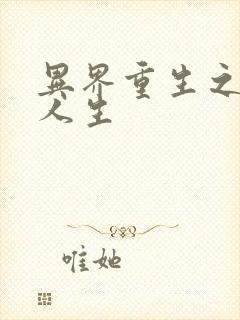 異界重生之
人生
唯她